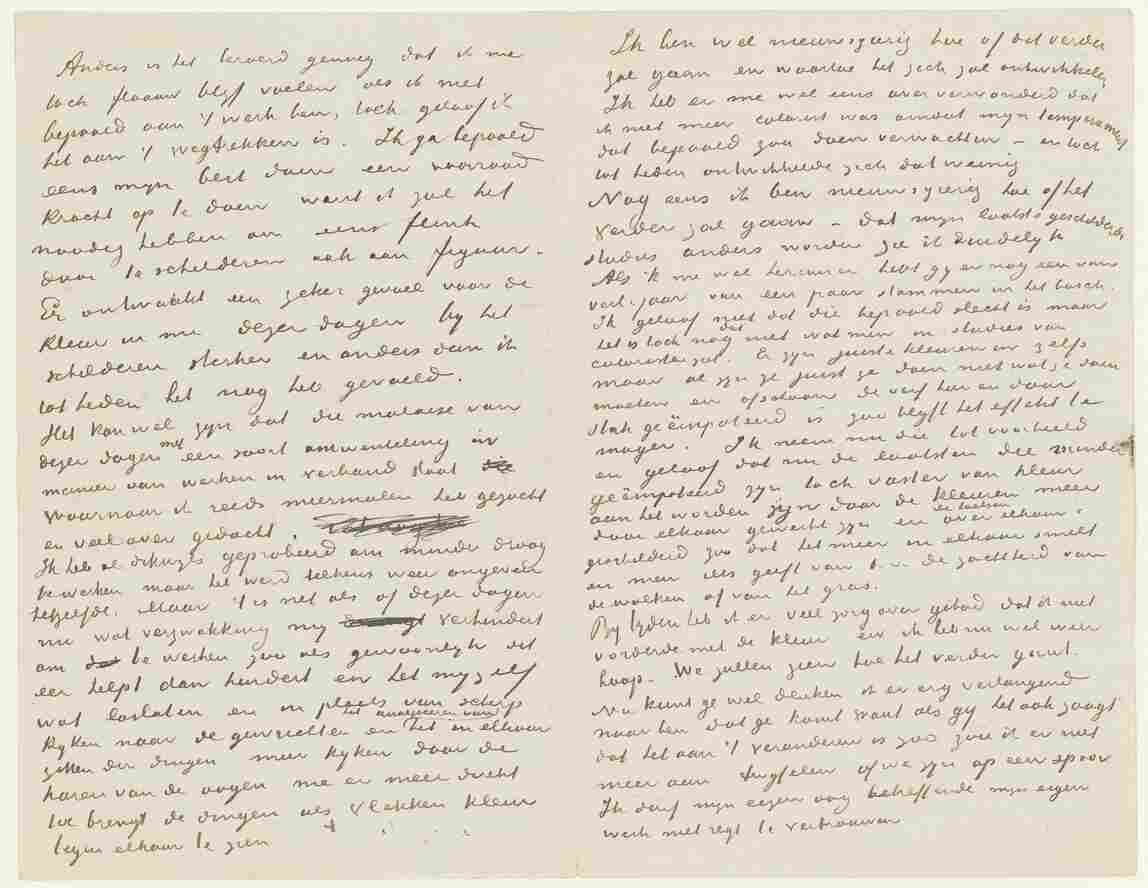 Anders is het beroerd genoeg dat ik me
toch flaauw blyf voelen als ik niet
bepaald aan 't werk ben, toch geloof ik
het aan 't wegtrekken is. Ik ga bepaald
eens myn best doen een voorraad
kracht op te doen want ik zal het
noodig hebben om eens flink
door te schilderen ook aan figuur.
Er ontwaakt een zeker gevoel voor de
kleur in me dezer dagen by het
schilderen sterker en anders dan ik
tot heden het nog heb gevoeld.
Het kan wel zyn dat die malaise van
dezer dagen met een soort omwenteling in
manier van werken in verband staat
waarnaar ik reeds meermalen heb gezocht
en veel over gedacht.
Ik heb al dikwyls geprobeerd om minder droog
te werken maar het werd telkens weer ongeveer
hetzelfde. Maar 't is net als of dezer dagen
nu wat verzwakking my verhindert
om te werken zoo als gewoonlyk dit
eer helpt dan hindert en het myzelf
wat loslaten en in plaats van scherp
kyken naar de gewrichten en het analyseeren van het in elkaar
zitten der dingen meer kyken door de
haren van de oogen me er meer direkt
toe brengt de dingen als vlakken kleur
tegen elkaar te zien
Ik ben wel nieuwsgierig hoe of dat verder
zal gaan en waartoe het zich zal ontwikkelen
Ik heb er me wel eens over verwonderd dat
ik niet meer colorist was omdat myn temperament
dat bepaald zou doen verwachten – en toch
tot heden ontwikkelde zich dat weinig
Nog eens ik ben nieuwsgierig hoe of het
verder zal gaan – dat myn laatste geschilderde
studies anders worden zie ik duidelyk
Als ik me wel herinner hebt gy er nog een van
verl. jaar van een paar stammen in het bosch.
Ik geloof niet dat die bepaald slecht is maar
het is toch nog niet dat wat men in studies van
coloristen ziet. Er zyn juiste kleuren in zelfs
maar al zyn ze juist ze doen niet wat ze doen
moeten en ofschoon de verf hier en daar
sterk geëmpateerd is zoo blyft het effekt te
mager. Ik neem nu die tot voorbeeld
en geloof dat nu de laatsten die minder
geëmpateerd zyn toch vaster van kleur
aan het worden zyn daar de kleuren meer
door elkaar gewerkt zyn en de toetsen over elkaar
geschilderd zoo dat het meer in elkaar smelt
en men iets geeft van b.v. de zachtheid van
de wolken of van het gras.
By tyden heb ik er veel zorg over gehad dat ik niet
vorderde met de kleur en ik heb nu wel weer
hoop. We zullen zien hoe het verder gaat.
Nu kunt ge wel denken ik er erg verlangend
naar ben dat ge komt want als gy het ook zaagt
dat het aan 't veranderen is zoo zou ik er niet
meer aan twyfelen of we zyn op een spoor
Ik durf myn eigen oog betreffende myn eigen
werk niet regt te vertrouwen